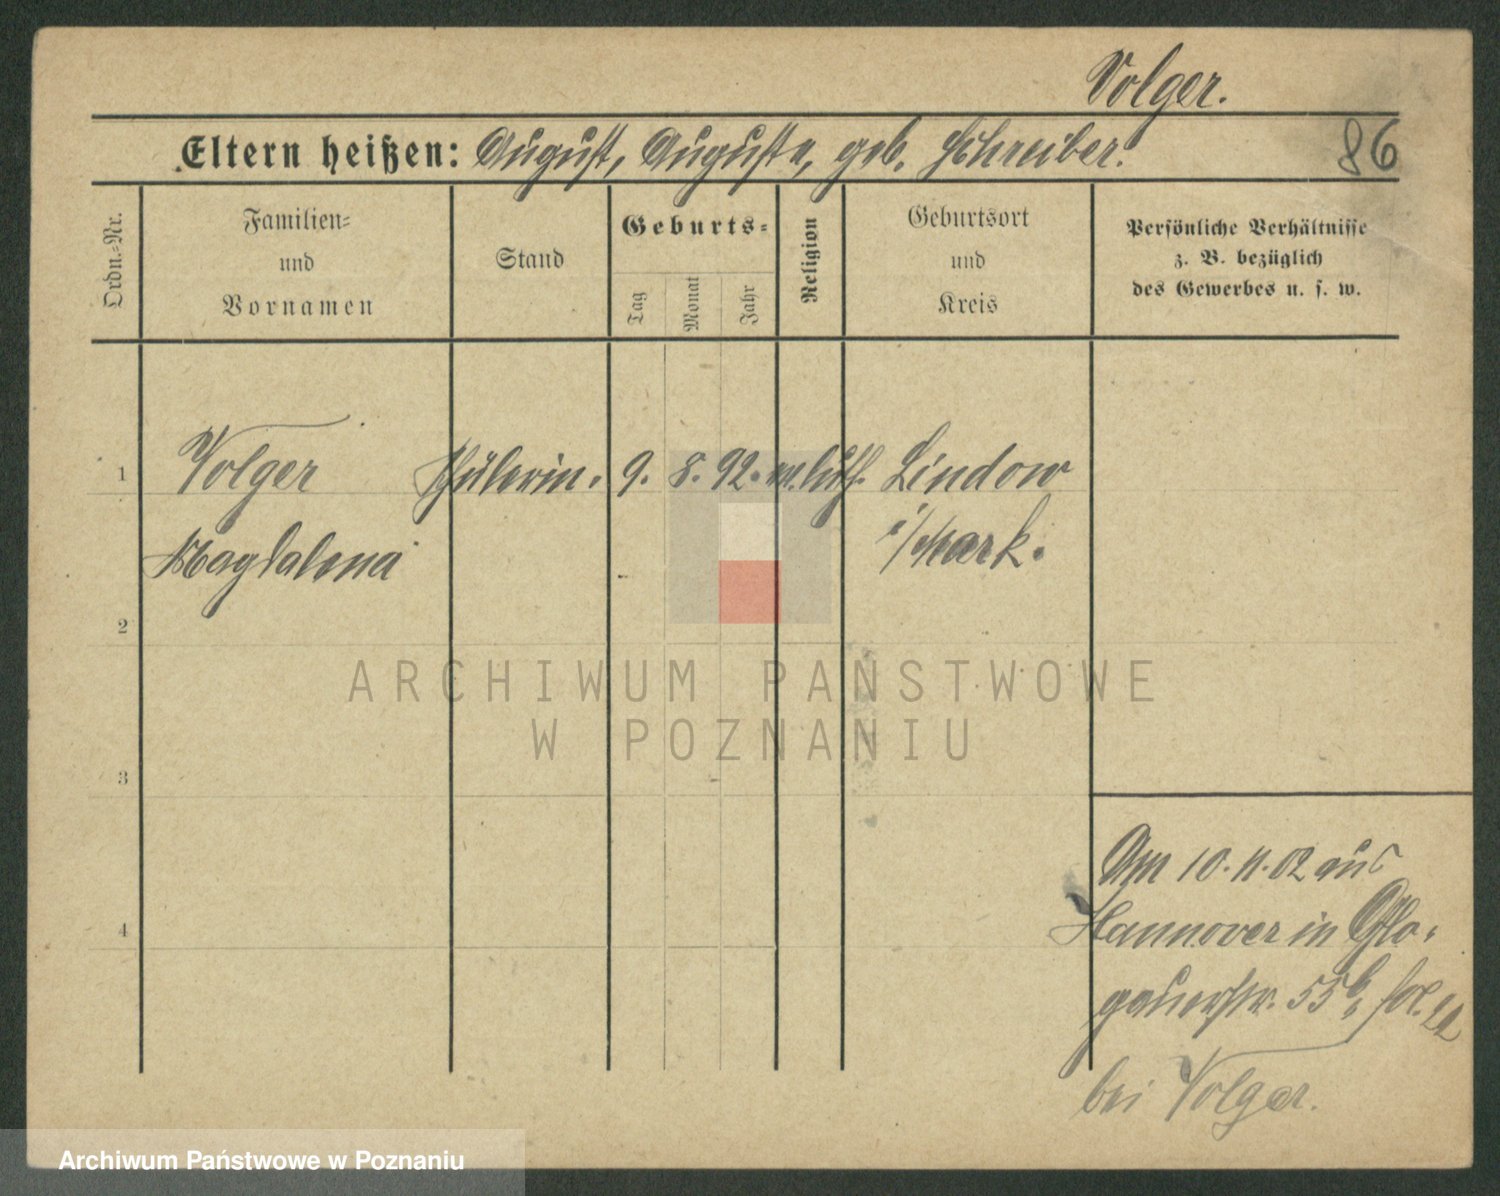 Volger.
Eltern heißen: August, Auguste, geb. Schreiber.
86
Ordn.-Nr.
Familien-
und
Vornamen
Stand
Geburts-
Tag
Monat
Jahr
Religion
Geburtsort
und
Kreis
Persönliche Verhältnisse
z. B. bezüglich
des Gewerbes u. s. w.
1 Volger Schülerin. 9. 8. 92. luth. Lindow
Magdalena i/Mark.
2
ARCHIWUM PAŃSTWOWE
W POZNANIU
3
Am 10.11.02 aus
4
Hannover in Glo-
gauerstr. 55
bei Volger.
Archiwum Państwowe w Poznaniu